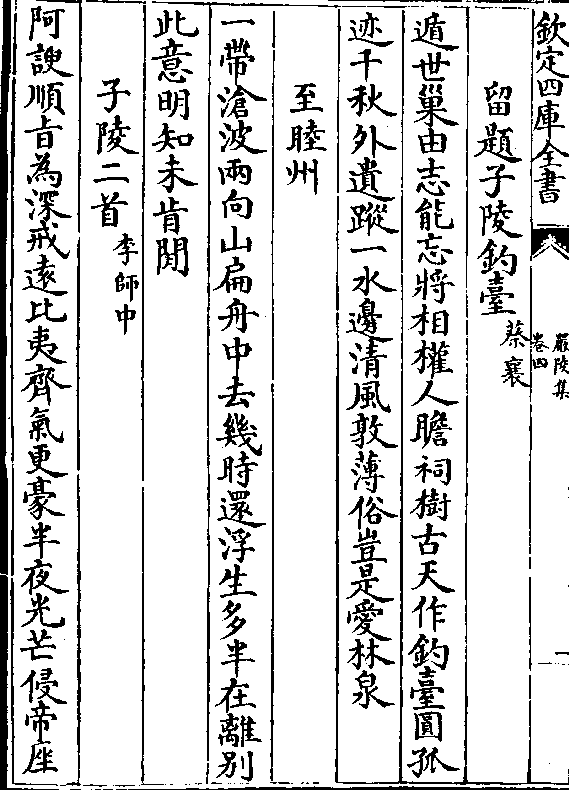 欽定四庫全書
嚴陵集
卷四
一
留題子陵釣臺
蔡襄
遁世巢由志能忘將相權人瞻祠樹古天作釣臺圓孤
迹千秋外遺蹤一水邊清風敦薄俗豈是愛林泉
至睦州
一帶滄波兩向山扁舟中去幾時還浮生多半在離別
此意明知未肯閒
子陵二首
李師中
阿諛順㫖為深戒遠比夷齊氣更豪半夜光芒侵帝座